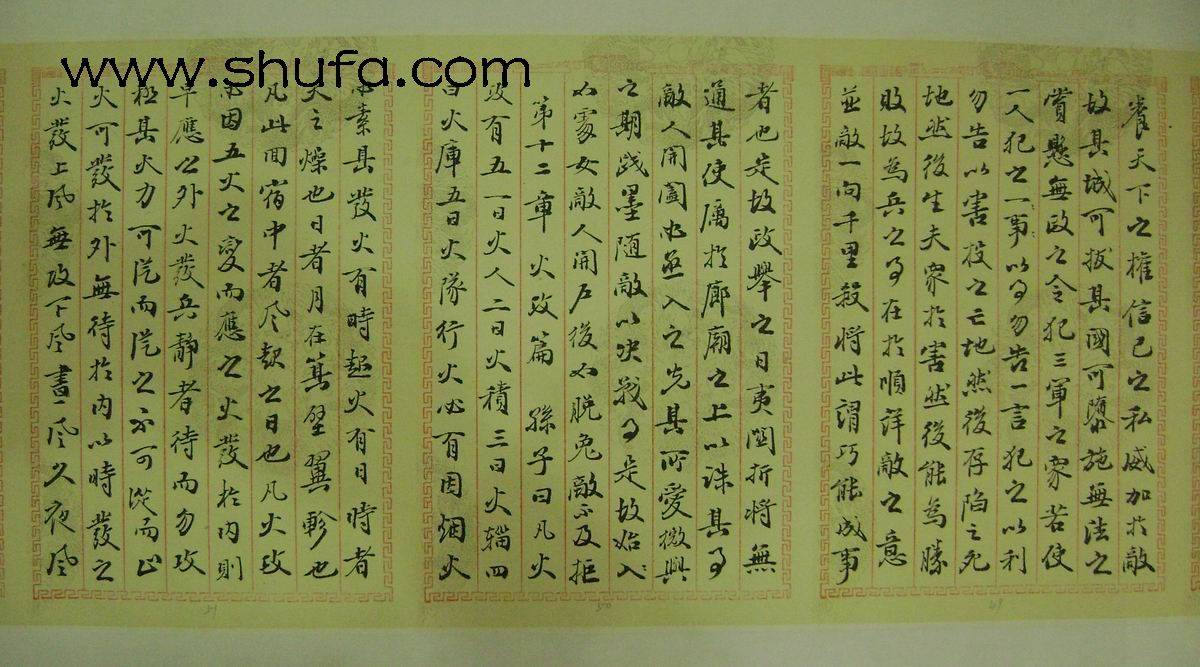 www.shufa.com
養天下之權信己之私威加於敵
故其城可拔其國可隳施無法之
賞懸無政之令犯三軍之衆若使
一人犯之一事以事勿告一言犯之以利
勿告以害投之亡地然後存陷之死
地然後生夫衆於害然後能為勝
敗故為兵之事在於順詳敵之意
並敵一向千里殺將此謂巧能成事
49
者也是故政舉之日夷關折將無
通其使厲於廊廟之上以誅其事
敵人開闔必亟入之先其所愛微與
之期踐墨隨敵以决戰事是故始入
如處女敵人開戶後如脫兔敵不及拒
第十二章 火攻篇 孫子曰凡火
攻有五一曰火人二曰火積三曰火輜四
曰火庫五曰火隊行火必有因烟火
50
必素具發火有時起火有日時者
天之燥也日者月在箕壁翼軫也
凡此四宿中者風起之日也凡火攻
必因五火之變而應之火發於内則
早應之外火發兵靜者待而勿攻
極其火力可從而從之不可從而止
火可發於外無待於内以時發之
火發上風無攻下風晝風久夜風
51